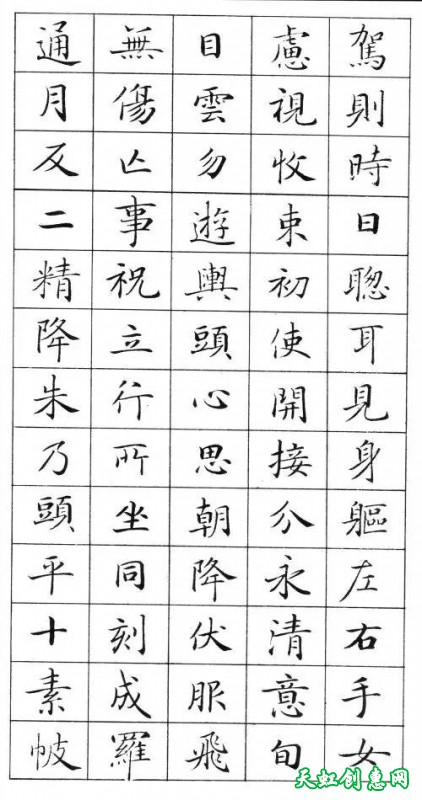 駕則時日聰耳見身軀左右手女
慮視收束初使開接分永清意旬
目雲勿遊輿頭心思朝降伏服飛
無傷亡事祝立行所坐同刻成羅
通月反二精降朱乃頭平十素帔
天虹创惠网